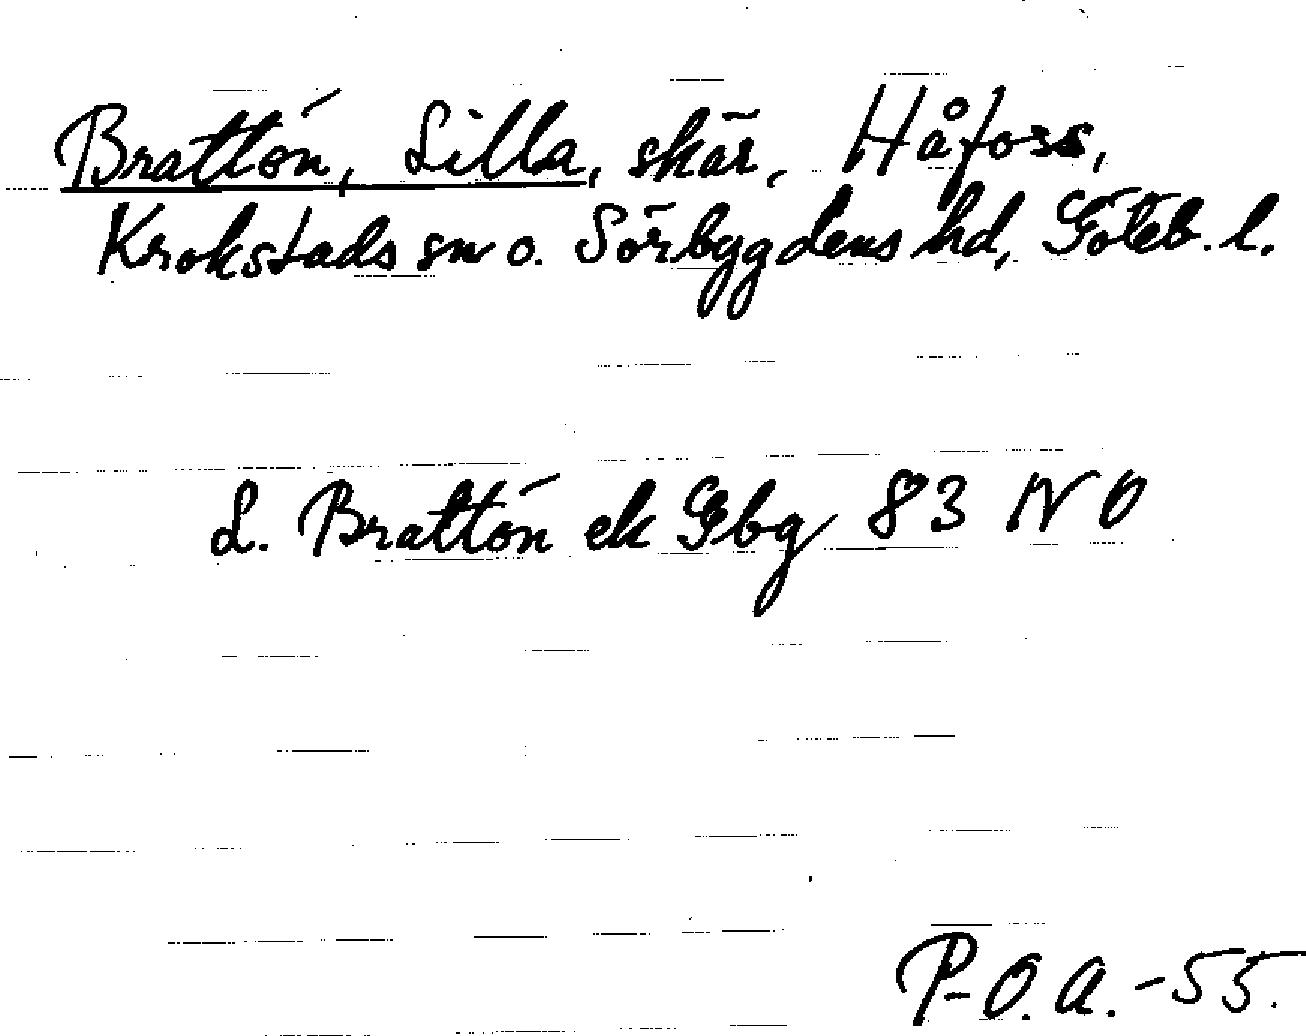 Brattön, Lilla, skär, Håfoss,
Krokstads sn o. Sörbygdens hd, Göteb. l.
L. Brattön ek Gbg 83 NO
P-O.A.-55.